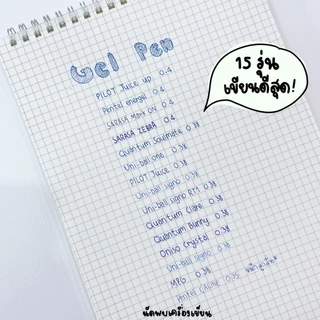 Gel Pen
15 รุ่น
เขียนดีสุด!
PILOT Juice up 0.4
Pentel energel 0.4
SARASA Mark ON 0.4
SARASA ZEBRA 0.4
Quantum Soulmate 0.38
Uni-ball one 0.38
PILOT Juice 0.38
Uni-ball Signo 0.38
Uni-ball Signo RT1 0.38
Quantum Clara 0.38
Quantum Bunny 0.38
Oniso Crystal 0.38
Uni-ball Signo 0.38
MPG 0.38
Pentel CALME 0.35
นัดพบเครื่องเขียน